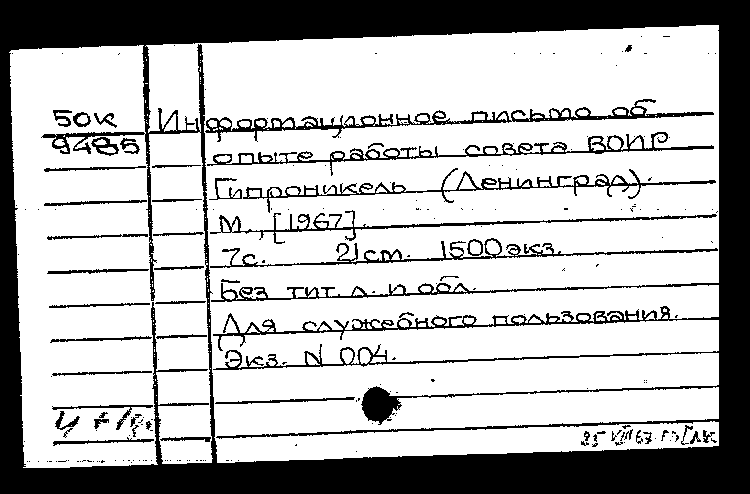 50к Информационное письмо об
9485 опыте работы совета ВОИР
Гипроникель (Ленинград).
М., [1967].
7с. 21см. 1500экз.
Без тит. л. и обл.
Для служебного пользования.
Экз. N 004.
25 VIII 67